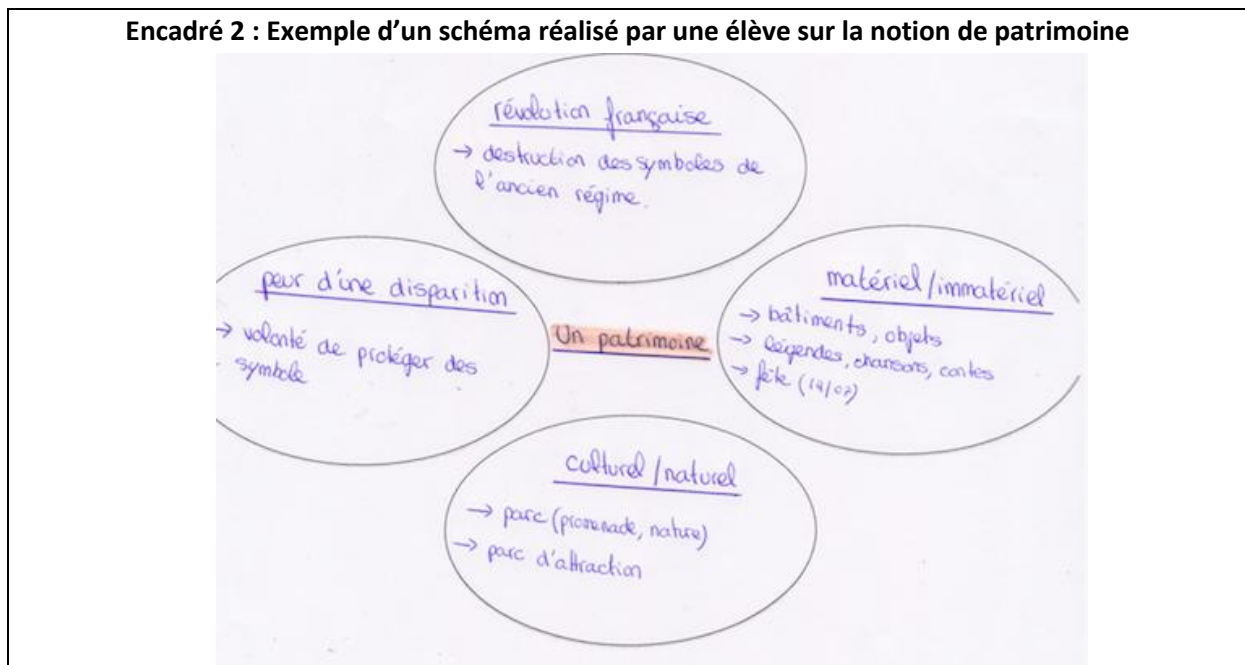 Encadré 2 : Exemple d’un schéma réalisé par une élève sur la notion de patrimoine
révolution française
→ destruction des symboles de
l'ancien régime.
peur d'une disparition
→ volonté de protéger des
symbole
Un patrimoine
matériel/immatériel
→ bâtiments, objets
→ légendes, chansons, contes
→ fête (14/07)
culturel/naturel
→ parc (promenade, nature)
→ parc d'attraction